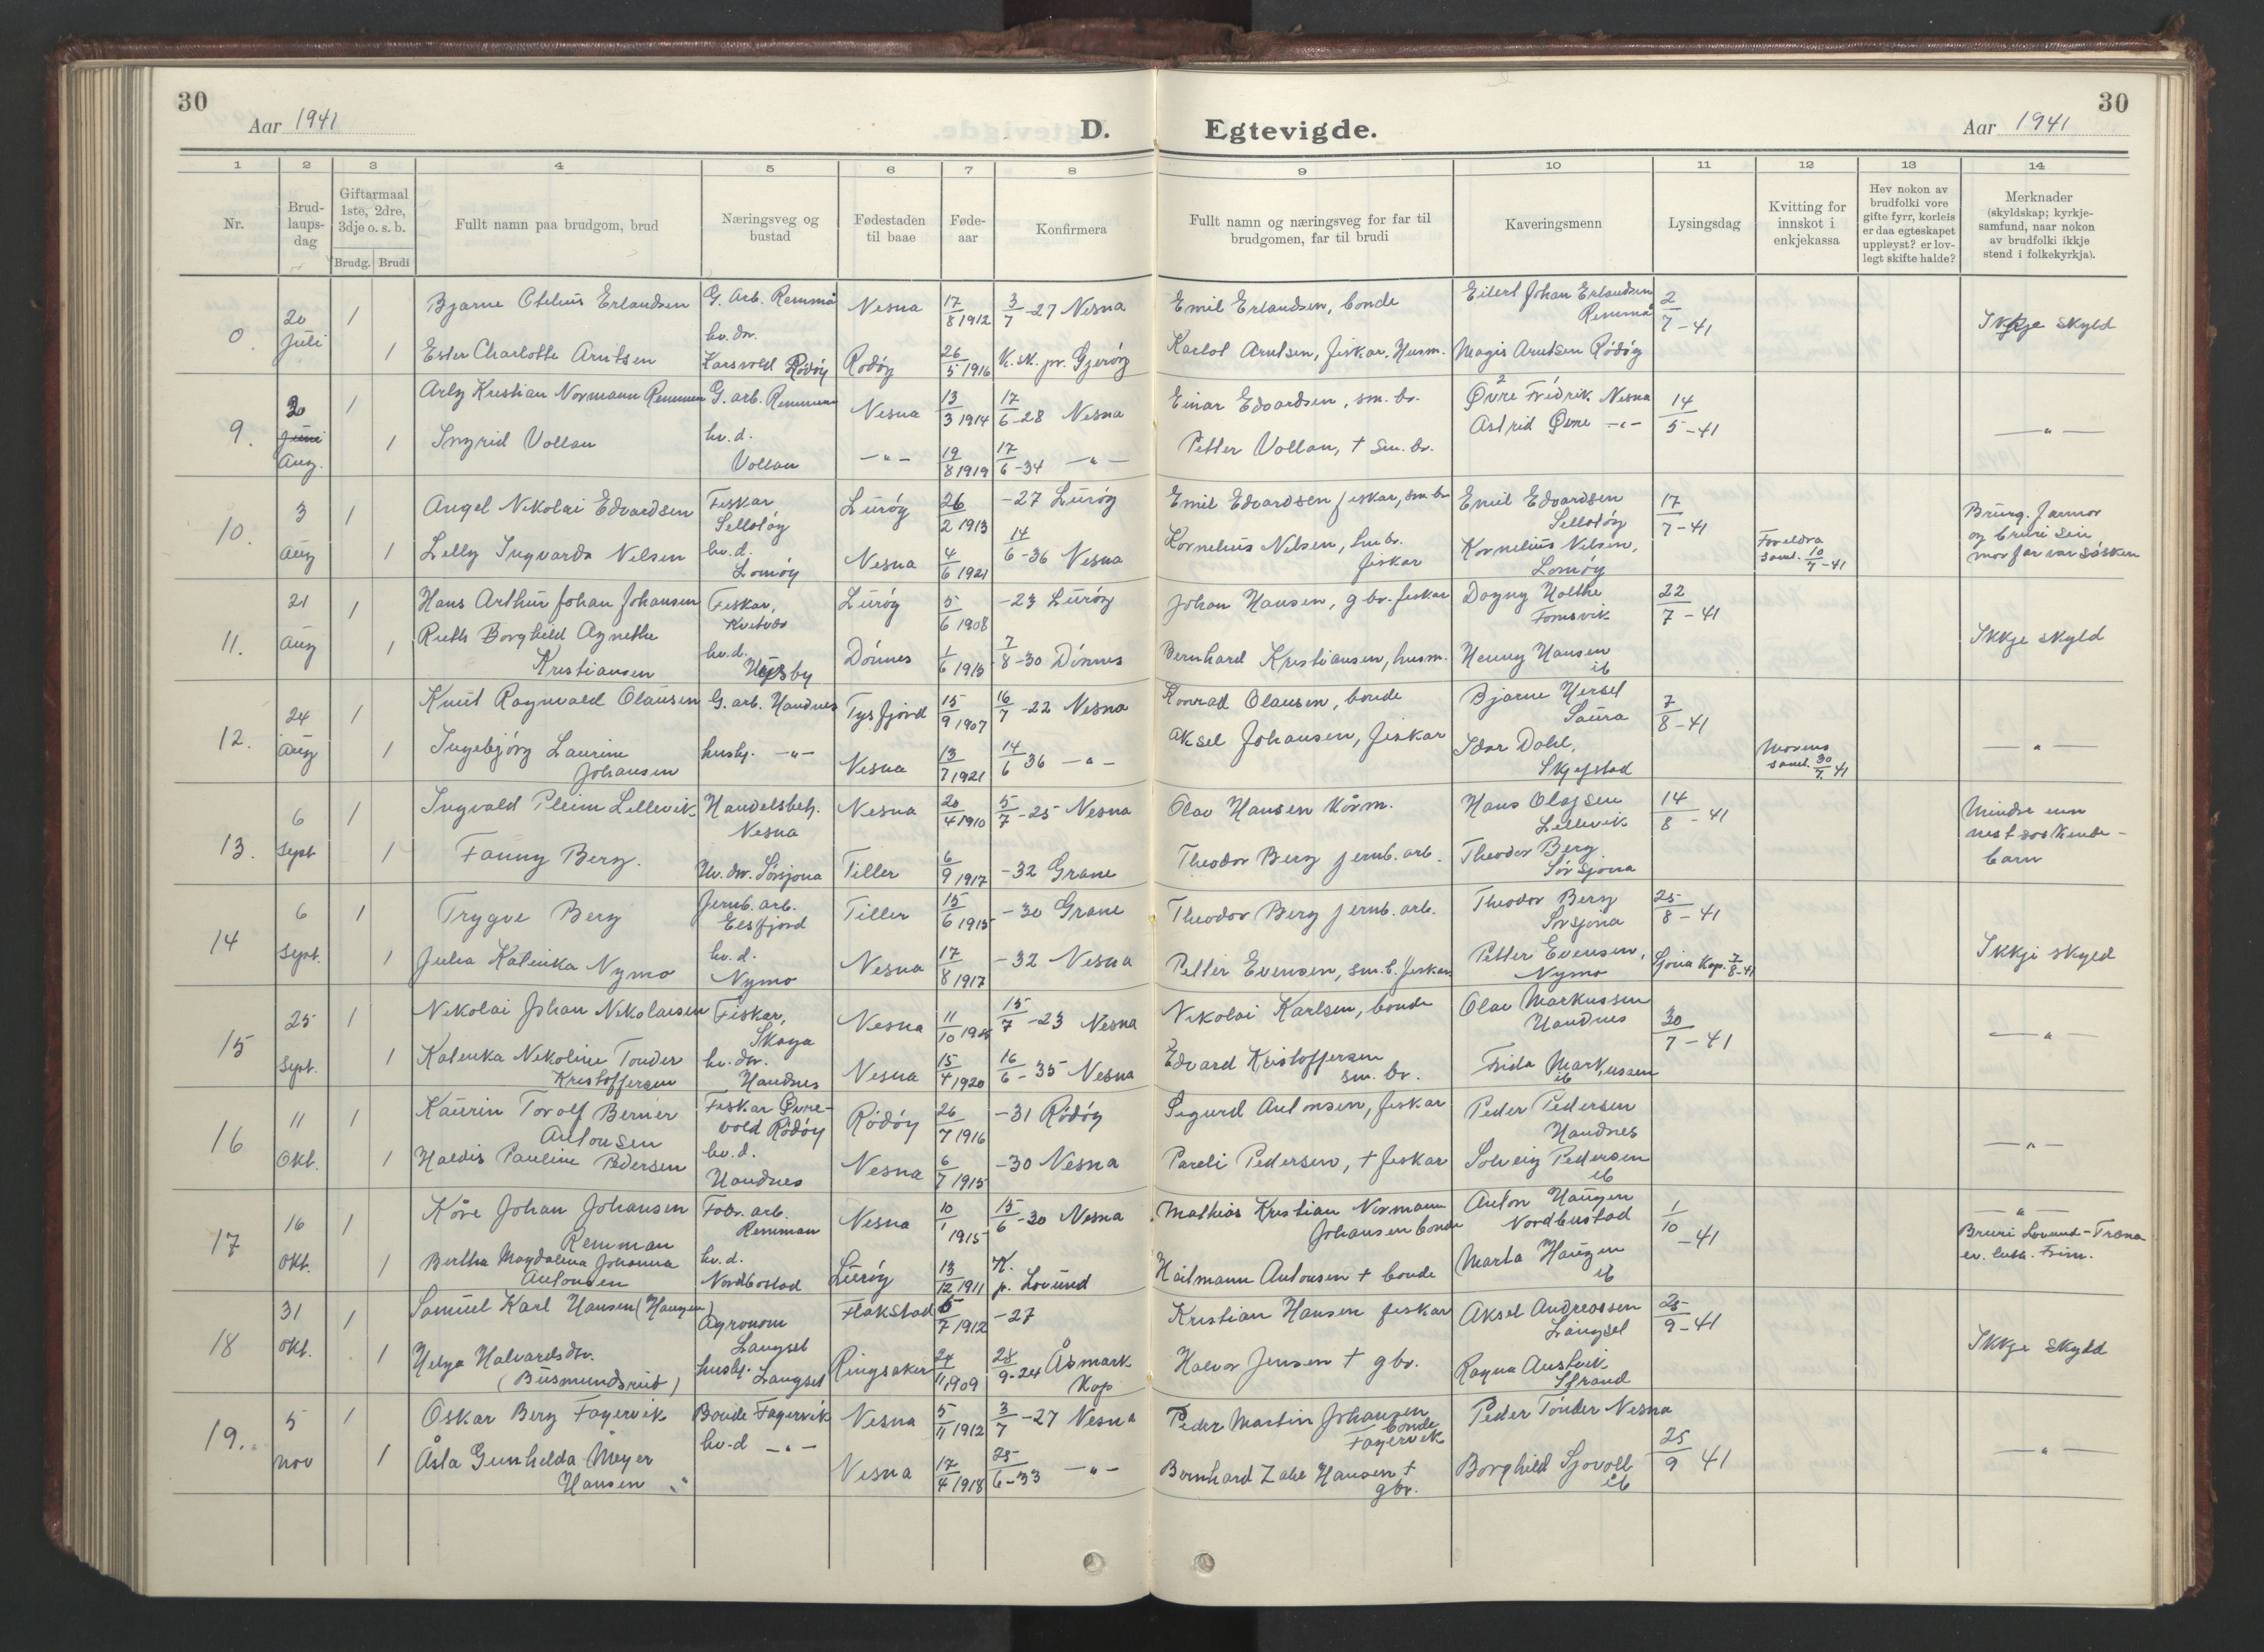 30
Aar 1941
D.
Egtevigde.
Aar 1941
30
1 2 3 4 5 6 7 8 9 10 11 12 13 14
Nr.
Brud-
laups-
dag
Giftarmaal
1ste, 2dre,
3dje o. s. b.
Brudg. Brudi
Fullt namn paa brudgom, brud
Næringsveg og
bustad
Fødestaden
til baae
Føde-
aar
Konfirmera
Fullt namn og næringsveg for far til
brudgomen, far til brudi
Kaveringsmenn
Lysingsdag
Kvitting for
innskot i
enkjekassa
Hev nokon av
brudfolki vore
gifte fyrr, korleis
er daa egteskapet
uppløyst? er lov-
legt skifte halde?
Merknader
(skyldskap; kyrkje-
samfund, naar nokon
av brudfolki ikkje
stend i folkekyrkja).
20 Juli
1 Bjarne Otelius Erlandsen G. Arb. Remmå Nesna 17/8 1912 3/7-27 Nesna Emil Erlandsen, bonde Eilert Johan Erlandsen Remmå 2/7-41 Ikkje skyld
1 Ester Charlotte Arntsen hv. dr. Karsvold Rødøy Rødøy 26/5 1916 K. sk. pr. Gjerøy Karlot Arntsen, fiskar, Husm. Magis Arntsen Rødøy
9. 20 Juni Aug.
1 Arly Kristian Normann Remmen G. arb. Remmen Nesna 13/3 1914 17/6-28 Nesna Einar Edvardsen, sm. br. Øvre Fridrik Nesna 14/5-41 —"—
1 Ingrid Vollan hv. d. Vollan —"— 19/8 1919 17/6-34 —"— Petter Vollan, † sm. br. Astrid Øvre —"—
10. 3 Aug
1 Angel Nikolai Edvardsen Fiskar Selløtøy Lurøy 26/2 1913 -27 Lurøy Emil Edvardsen fiskar, sm. br Emil Edvardsen Selløtøy 17/7-41 Brurg. farmor og bruri sin morfar var søsken
1 Lelly Ingvarda Nilsen hv. d. Lomøy Nesna 4/6 1921 14/6-36 Nesna Kornelius Nilsen, sm br. fiskar Kornelius Nilsen, Lomøy Foreldra saml. 10/7-41
11. 21 Aug
1 Hans Arthur Johan Johansen Fiskar, Kvitvær Lurøy 5/6 1908 -23 Lurøy Johan Hansen, g br. fiskar Dagny Holthe Fornsvik 22/7-41 Ikkje skyld
1 Ruth Borghild Agnethe Kristiansen hv. d. Husby Dønnes 1/6 1915 7/8-30 Dønnes Bernhard Kristiansen, husm. Henny Hansen ib
12. 24 Aug
1 Knut Ragnvald Olausen G. arb. Handnes Tysfjord 15/9 1907 16/7-22 Nesna Konrad Olausen, bonde Bjarne Hersel Saura 7/8-41 —"—
1 Ingebjørg Laurine Johansen hushj. —"— Nesna 13/7 1921 14/6 36 —"— Aksel Johansen, fiskar Idar Dahl, Skjefstad Morens saml. 30/7. 41
13. 6 Sept
1 Ingvald Pleim Lillevik Handelsbetj. Nesna Nesna 20/4 1910 5/7-25 Nesna Olav Hansen Kårm. Hans Olafsen Lillevik 14/8-41 Mindre enn nest søskende-barn
1 Fanny Berg. Hv. dr. Sørsjona Tiller 6/9 1917 -32 Grane Theodor Berg jernb. arb. Theodor Berg Sør Sjona
14 6 Sept.
1 Trygve Berg Jernb. arb. Elsfjord Tiller 15/6 1915 -30 Grane Theodor Berg jernb. arb. Theodor Berg Sørsjona 25/8-41 Ikkje skyld
1 Julia Katinka Nymo hv. d. Nymo Nesna 17/8 1917 -32 Nesna Petter Evensen, sm. b. fiskar Petter Evensen, Nymo Sjona Kap. 7/8-41
15 25 Sept.
1 Nikolai Johan Nikolaisen Fiskar, Skoga Nesna 11/10 15/7-23 Nesna Nikolai Karlsen, bonde Olav Markussen Handnes 30/7-41 —"—
1 Katinka Nikoline Tonder Kristoffersen hv. dr. Handnes Nesna 15/4 1920 16/6-35 Nesna Edvard Kristoffersen sm. br. Frida Markussen ib
16 11 Okt.
1 Kaurin Torolf Berner Antonsen Fiskar Øvre-vold Rødøy Rødøy 26/7 1916 -31 Rødøy Sigurd Antonsen, fiskar Peder Pedersen Handnes —"—
1 Haldis Pauline Pedersen hv. d. Handnes Nesna 6/7 1915 -30 Nesna Pareli Pedersen, † fiskar Solveig Pedersen ib
17 16 Okt.
1 Kåre Johan Johansen Remman Fabr. arb. Remman Nesna 10/1 1915 15/6-30 Nesna Mathias Kristian Normann Johansen bonde Anton Haugen Nordbustad 1/10-41 —"—
1 Bertha Magdalena Johanna Antonsen hv. d. Nordbostad Lurøy 13/12 1911 K. p. Lovund Hailmann Antonsen † bonde Marta Haugen ib Bruri Lovund-Træna ev. luth. Frim.
18 31 Okt.
1 Samuel Karl Hansen (Haugen) Agronom Langset Flakstad 6/7 1912 -27 Kristian Hansen fiskar Aksel Andreassen Langset 25/9-41 Ikkje skyld
1 Helga Halvardsdr. (Busmundsrud) hushj. Langset Ringsaker 24/11 1909 28/9-24 Åsmark Kap Halvor Jensen † gbr. Ragna Austvik Strand
19. 5 nov
1 Oskar Berg Fagervik Bonde Fagervik Nesna 5/11 1912 3/7-27 Nesna Peder Martin Johansen bonde Fagervik Peder Tonder Nesna 25/9 41 —"—
1 Åsta Gunhelda Meyer Hansen hv. d —"— Nesna 17/4 1918 25/6-33 —"— Bernhard Zahl Hansen † gbr. Borghild Sjovoll ib